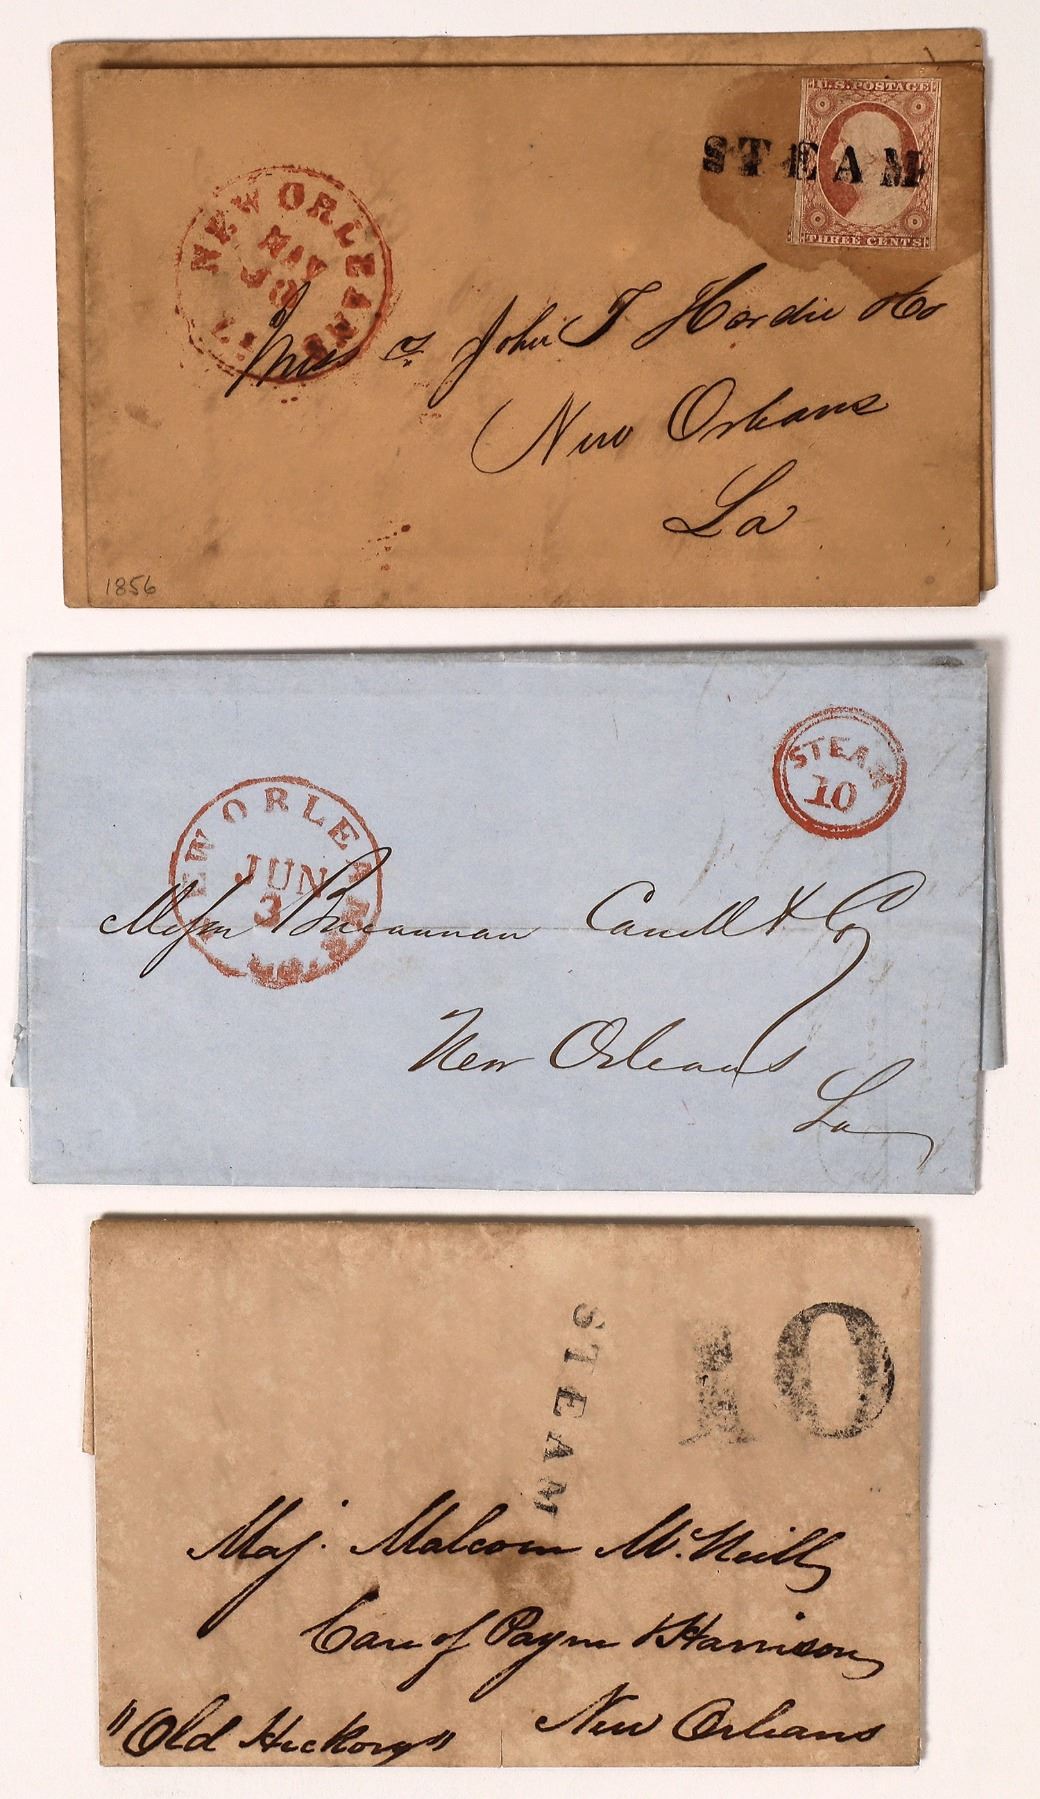 U.S. POSTAGE
STEAM
THREE CENTS
NEW ORLEANS
MAY
30
La
John T Hardie & Co
New Orleans
La
1856
STEAM
10
NEW ORLEANS
JUN
3
La
New Orleans
La
STEAM
10
Maj. Malcom McNeill
Care of Payne & Harrison
New Orleans
"Old Hickory"